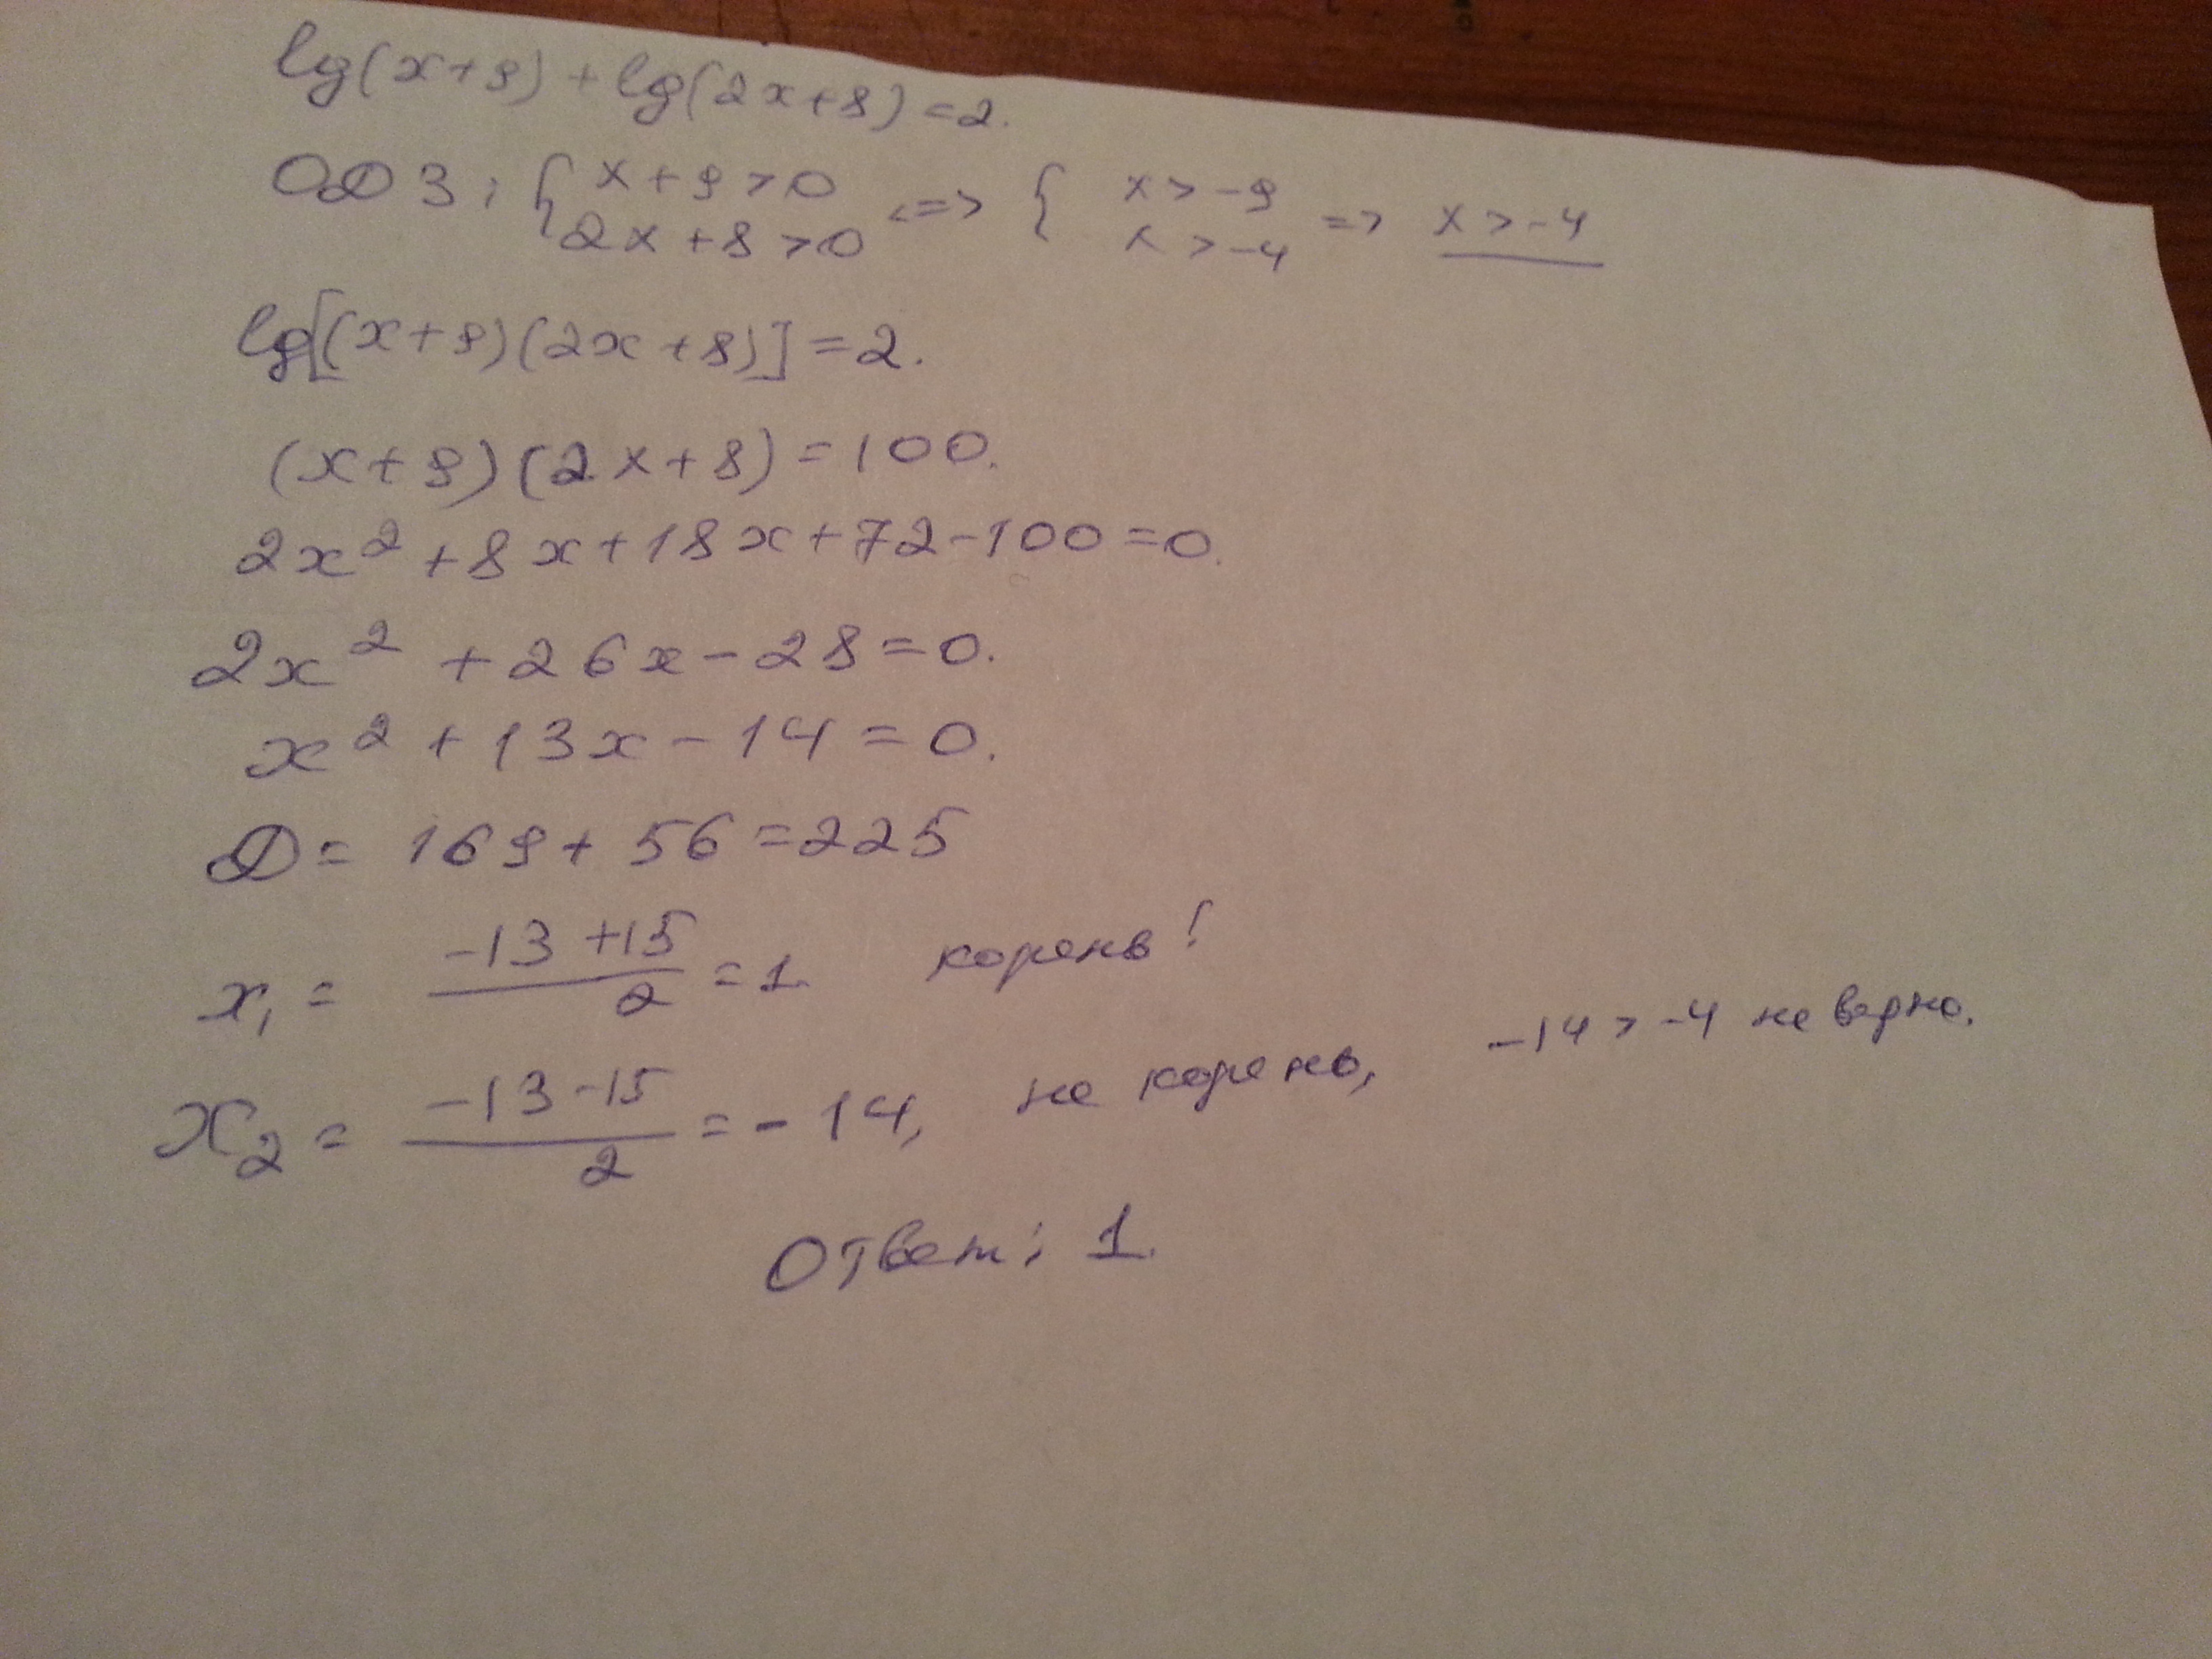 lg(x+9)+lg(2x+8)=2.
ОДЗ: { x+9>0 <=> { x>-9 => x>-4
2x+8>0 x>-4
lg[(x+9)(2x+8)]=2.
(x+9)(2x+8)=100.
2x²+8x+18x+72-100=0.
2x²+26x-28=0.
x²+13x-14=0.
D=169+56=225
x₁= (-13+15)/2 =1. корень!
x₂= (-13-15)/2 =-14, не корень, -14>-4 не верно.
Ответ: 1.